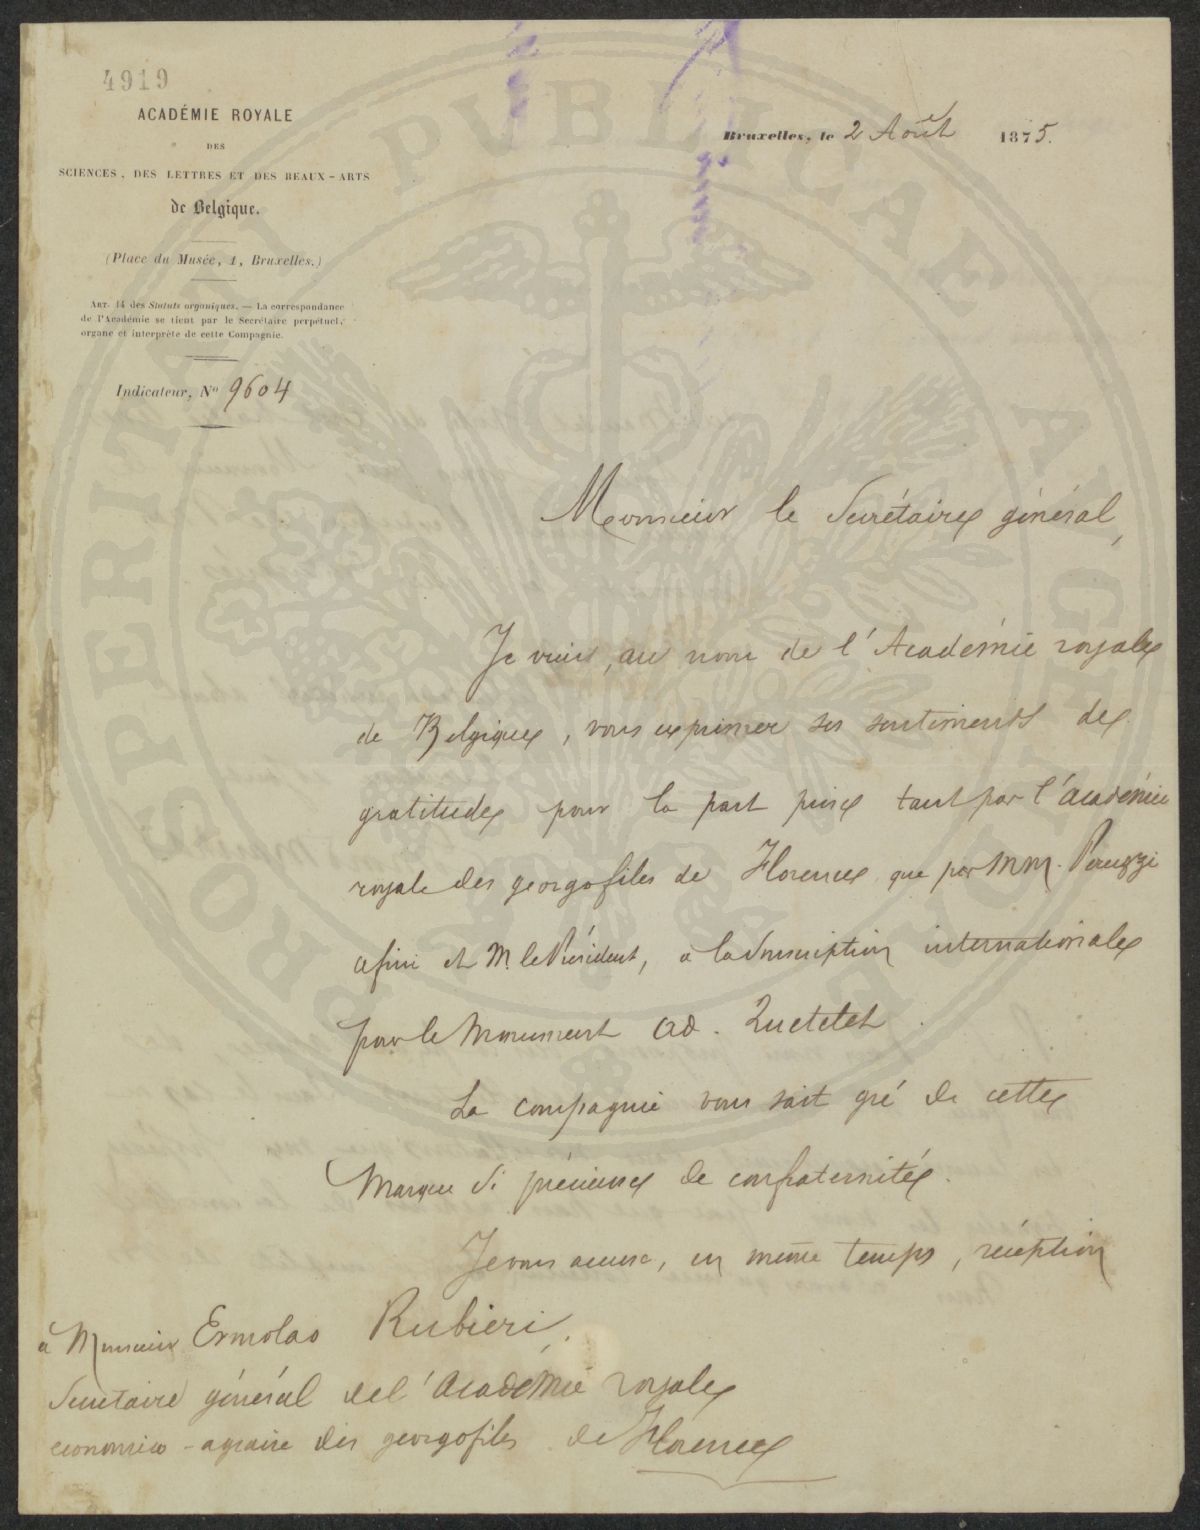 4919
ACADÉMIE ROYALE
DES
SCIENCES, DES LETTRES ET DES BEAUX-ARTS
de Belgique.
(Place du Musée, 1, Bruxelles.)
ART. 14 des Statuts organiques. — La correspondance
de l'Académie se tient par le Secrétaire perpétuel,
organe et interprète de cette Compagnie.
Indicateur, No 9604
Bruxelles, le 2 Août 1875.
Monsieur le Secrétaire général,
Je viens, au nom de l'Académie royale
de Belgique, vous exprimer ses sentiments de
gratitude pour la part prise tant par l'Académie
royale des georgofiles de Florence que par MM. Peruzzi
et M. le Président, à la souscription internationale
pour le Monument Ad. Quetelet.
La compagnie vous sait gré de cette
marque si précieuse de confraternité.
Je vous accuse, en même temps, réception
à Monsieur Ermolao Rubieri,
Secrétaire général de l'Académie royale
economico-agraire des georgofiles de Florence
PROSPERITATI PUBLICAE AUGENDAE